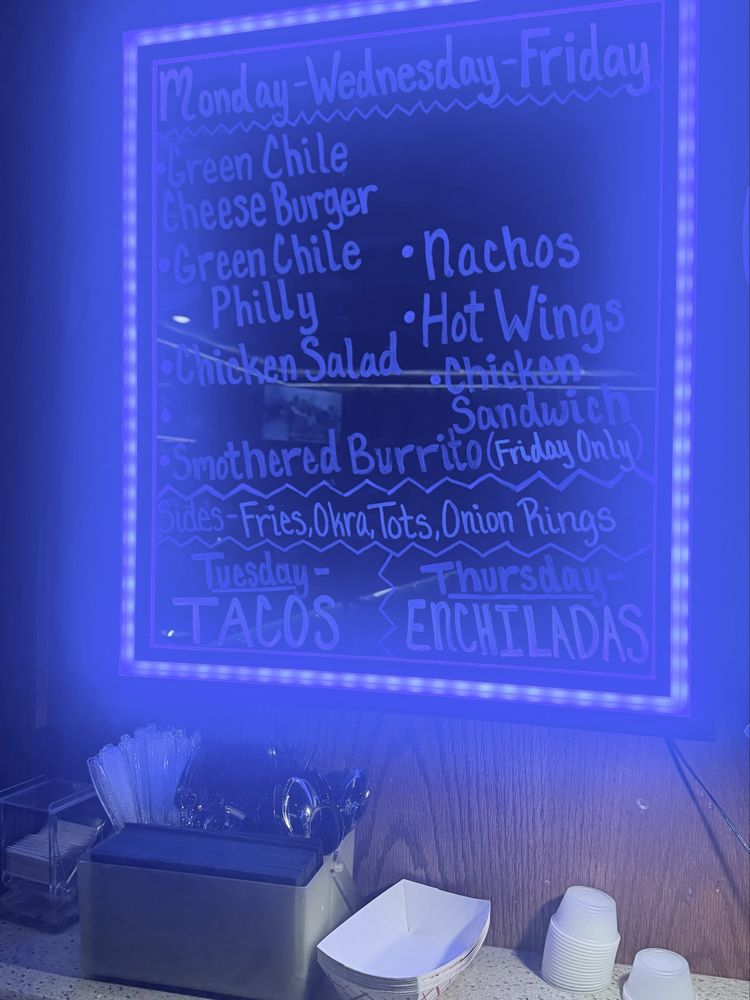 Monday-Wednesday-Friday
•Green Chile
Cheese Burger
•Green Chile
Philly
•Chicken Salad
•
•Nachos
•Hot Wings
•Chicken
Sandwich
•Smothered Burrito (Friday Only)
Sides-Fries, Okra, Tots, Onion Rings
Tuesday-
TACOS
Thursday-
ENCHILADAS